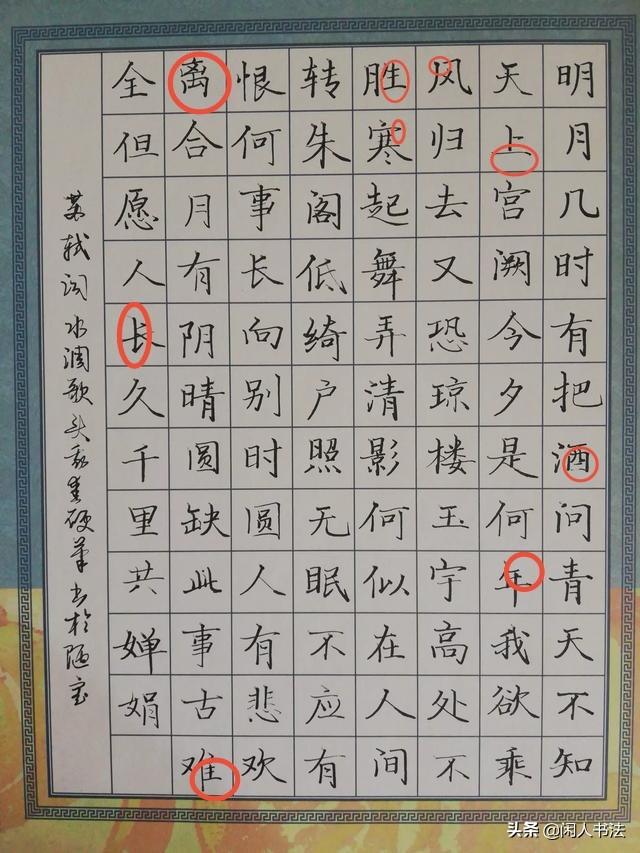 明月几时有把酒问青天不知
天上宫阙今夕是何年我欲乘
风归去又恐琼楼玉宇高处不
胜寒起舞弄清影何似在人间
转朱阁低绮户照无眠不应有
恨何事长向别时圆人有悲欢
离合月有阴晴圆缺此事古难
全但愿人长久千里共婵娟
苏轼词水调歌头硬笔书於陋室
头条 @闲人书法